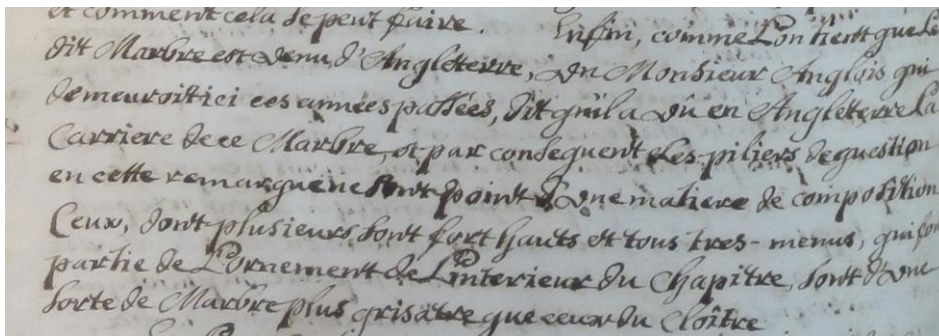 et comment cela se peut faire. Enfin, comme L'on tient que Le
dit Marbre est venu d'Angleterre, un Monsieur Anglois qui
demeuroit ici ces années passées, dit qu'il a vû en Angleterre La
Carriere de ce Marbre, et par consequent Les piliers de question
en cette remarque ne sont point d'une matiere de composition
Ceux, dont plusieurs sont fort hauts et tous tres-menus, qui fon
partie de L'ornement de L'interieur du Chapitre, sont d'une
sorte de Marbre plus grisatre que ceux du Cloître